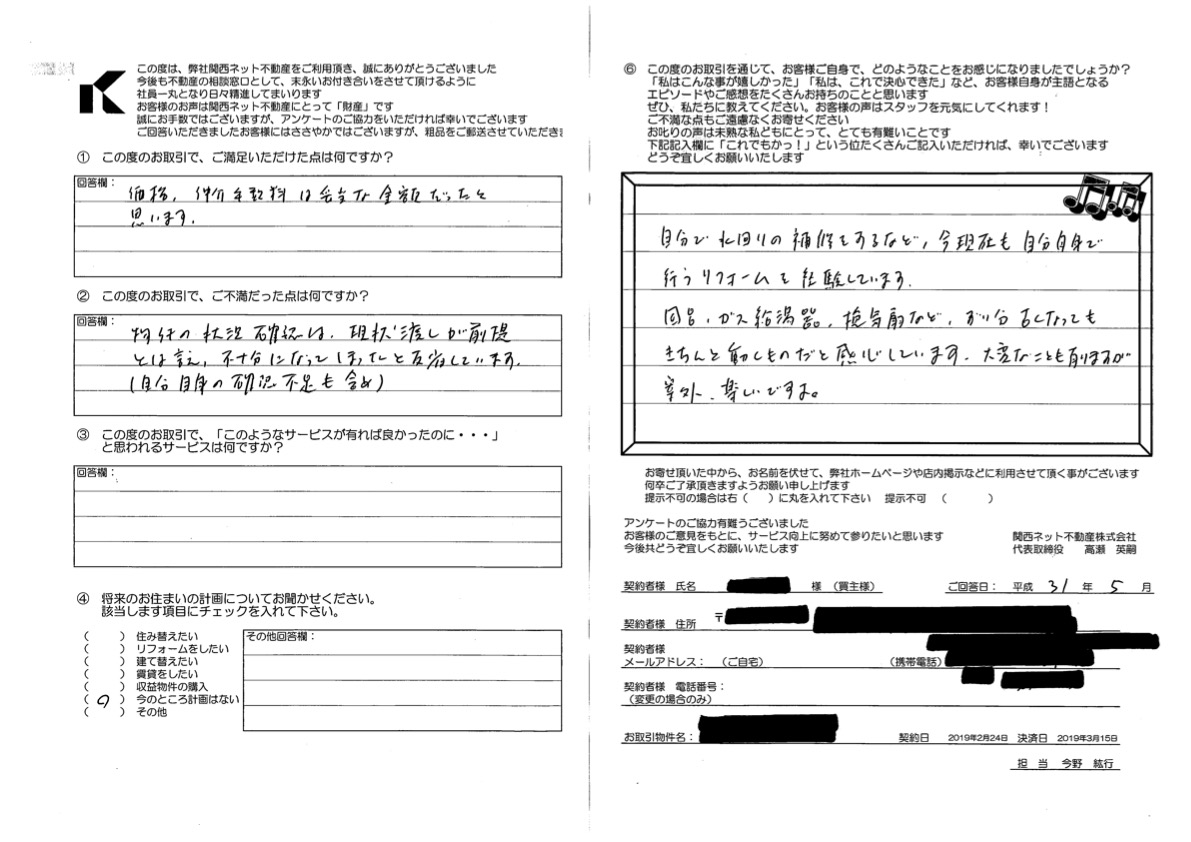 この度は、弊社関西ネット不動産をご利用頂き、誠にありがとうございました
今後も不動産の相談窓口として、末永いお付き合いをさせて頂けるように
社員一丸となり日々精進してまいります
お客様のお声は関西ネット不動産にとって「財産」です
誠にお手数ではございますが、アンケートのご協力をいただければ幸いでございます
ご回答いただきましたお客様にはささやかではございますが、粗品をご郵送させていただきま
① この度のお取引で、ご満足いただけた点は何ですか？
回答欄：
価格、仲介手数料は妥当な金額だったと
思います。
② この度のお取引で、ご不満だった点は何ですか？
回答欄：
物件の状況確認は、現状渡しが前提
とは言え、不十分になってしまったと反省しています。
（自分自身の確認不足も含め）
③ この度のお取引で、「このようなサービスが有れば良かったのに・・・」
と思われるサービスは何ですか？
回答欄：
④ 将来のお住まいの計画についてお聞かせください。
該当します項目にチェックを入れて下さい。
（　　）住み替えたい
（　　）リフォームをしたい
（　　）建て替えたい
（　　）賃貸をしたい
（　　）収益物件の購入
（　　）今のところ計画はない
（　　）その他
その他回答欄：
⑥ この度のお取引を通じて、お客様ご自身で、どのようなことをお感じになりましたでしょうか？
「私はこんな事が嬉しかった」「私は、これで決心できた」など、お客様自身が主語となる
エピソードやご感想をたくさんお持ちのことと思います
ぜひ、私たちに教えてください。お客様の声はスタッフを元気にしてくれます！
ご不満な点もご遠慮なくお寄せください
お叱りの声は未熟な私どもにとって、とても有難いことです
下記記入欄に「これでもかっ！」という位たくさんご記入いただければ、幸いでございます
どうぞ宜しくお願いいたします
自分で水回りの補修をするなど、今現在も自分自身で
行うリフォームを経験しています。
風呂、ガス給湯器、換気扇など、ずい分古くなっても
きちんと動くものだと感心しています。大変なことも有りますが
案外、楽しいですよ。
お寄せ頂いた中から、お名前を伏せて、弊社ホームページや店内掲示などに利用させて頂く事がございます
何卒ご了承頂きますようお願い申し上げます
提示不可の場合は右（　　）に丸を入れて下さい　提示不可　（　　　）
アンケートのご協力有難うございました
お客様のご意見をもとに、サービス向上に努めて参りたいと思います
今後共どうぞ宜しくお願いいたします
関西ネット不動産株式会社
代表取締役　高瀬　英嗣
契約者様 氏名　様（買主様）　ご回答日：　平成 31 年 5 月
契約者様 住所　〒
契約者様
メールアドレス：（ご自宅）　（携帯電話）
契約者様 電話番号：
（変更の場合のみ）
お取引物件名：　契約日　2019年2月24日　決済日　2019年3月15日
担 当　今野　紘行